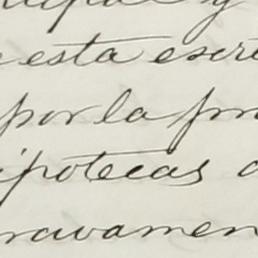 y
esta escri
por la pre
ipotecas
ravamen